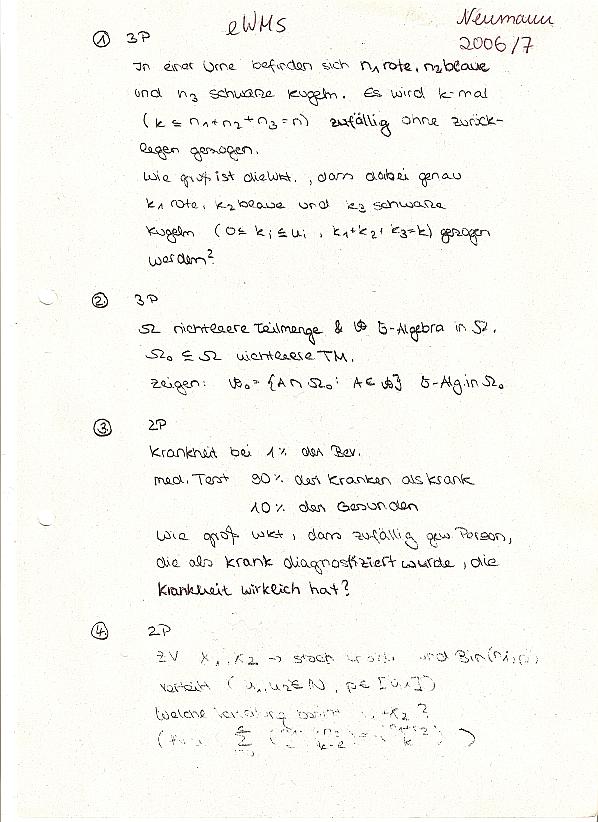 eWMS
Neumann
2006/7
① 3P
In einer Urne befinden sich n₁ rote, n₂ blaue
und n₃ schwarze Kugeln. Es wird k-mal
(k ≤ n₁+n₂+n₃=n) zufällig ohne zurück-
legen gezogen.
Wie groß ist die Wkt., dass dabei genau
k₁ rote, k₂ blaue und k₃ schwarze
Kugeln (0 ≤ kᵢ ≤ nᵢ, k₁+k₂+k₃=k) gezogen
werden?
② 3P
Ω nichtleere Teilmenge & 𝔅 σ-Algebra in Ω.
Ω₀ ⊆ Ω nichtleere TM.
zeigen: 𝔅₀ = {A∩Ω₀: A∈𝔅} σ-Alg. in Ω₀
③ 2P
Krankheit bei 1% der Bev.
med. Test 90% der Kranken als krank
10% der Gesunden
Wie groß Wkt, dass zufällig gew Person,
die als krank diagnostiziert wurde, die
Krankheit wirklich hat?
④ 2P
ZV X₁, X₂ → stoch und Bin(nᵢ,p)
verteilt (n₁,n₂∈N, p∈[0,1])
Welche X₂?